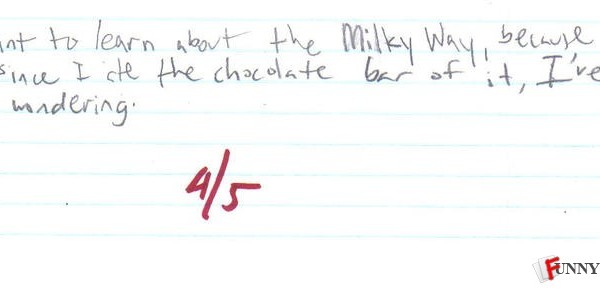 nt to learn about the Milky Way, because
since I ate the chocolate bar of it, I've
wondering.
4/5
FUNNY